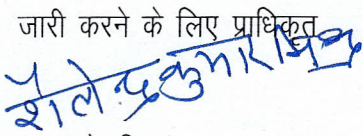 जारी करने के लिए प्राधिकृत
शैलेन्द्र कुमार मिश्र